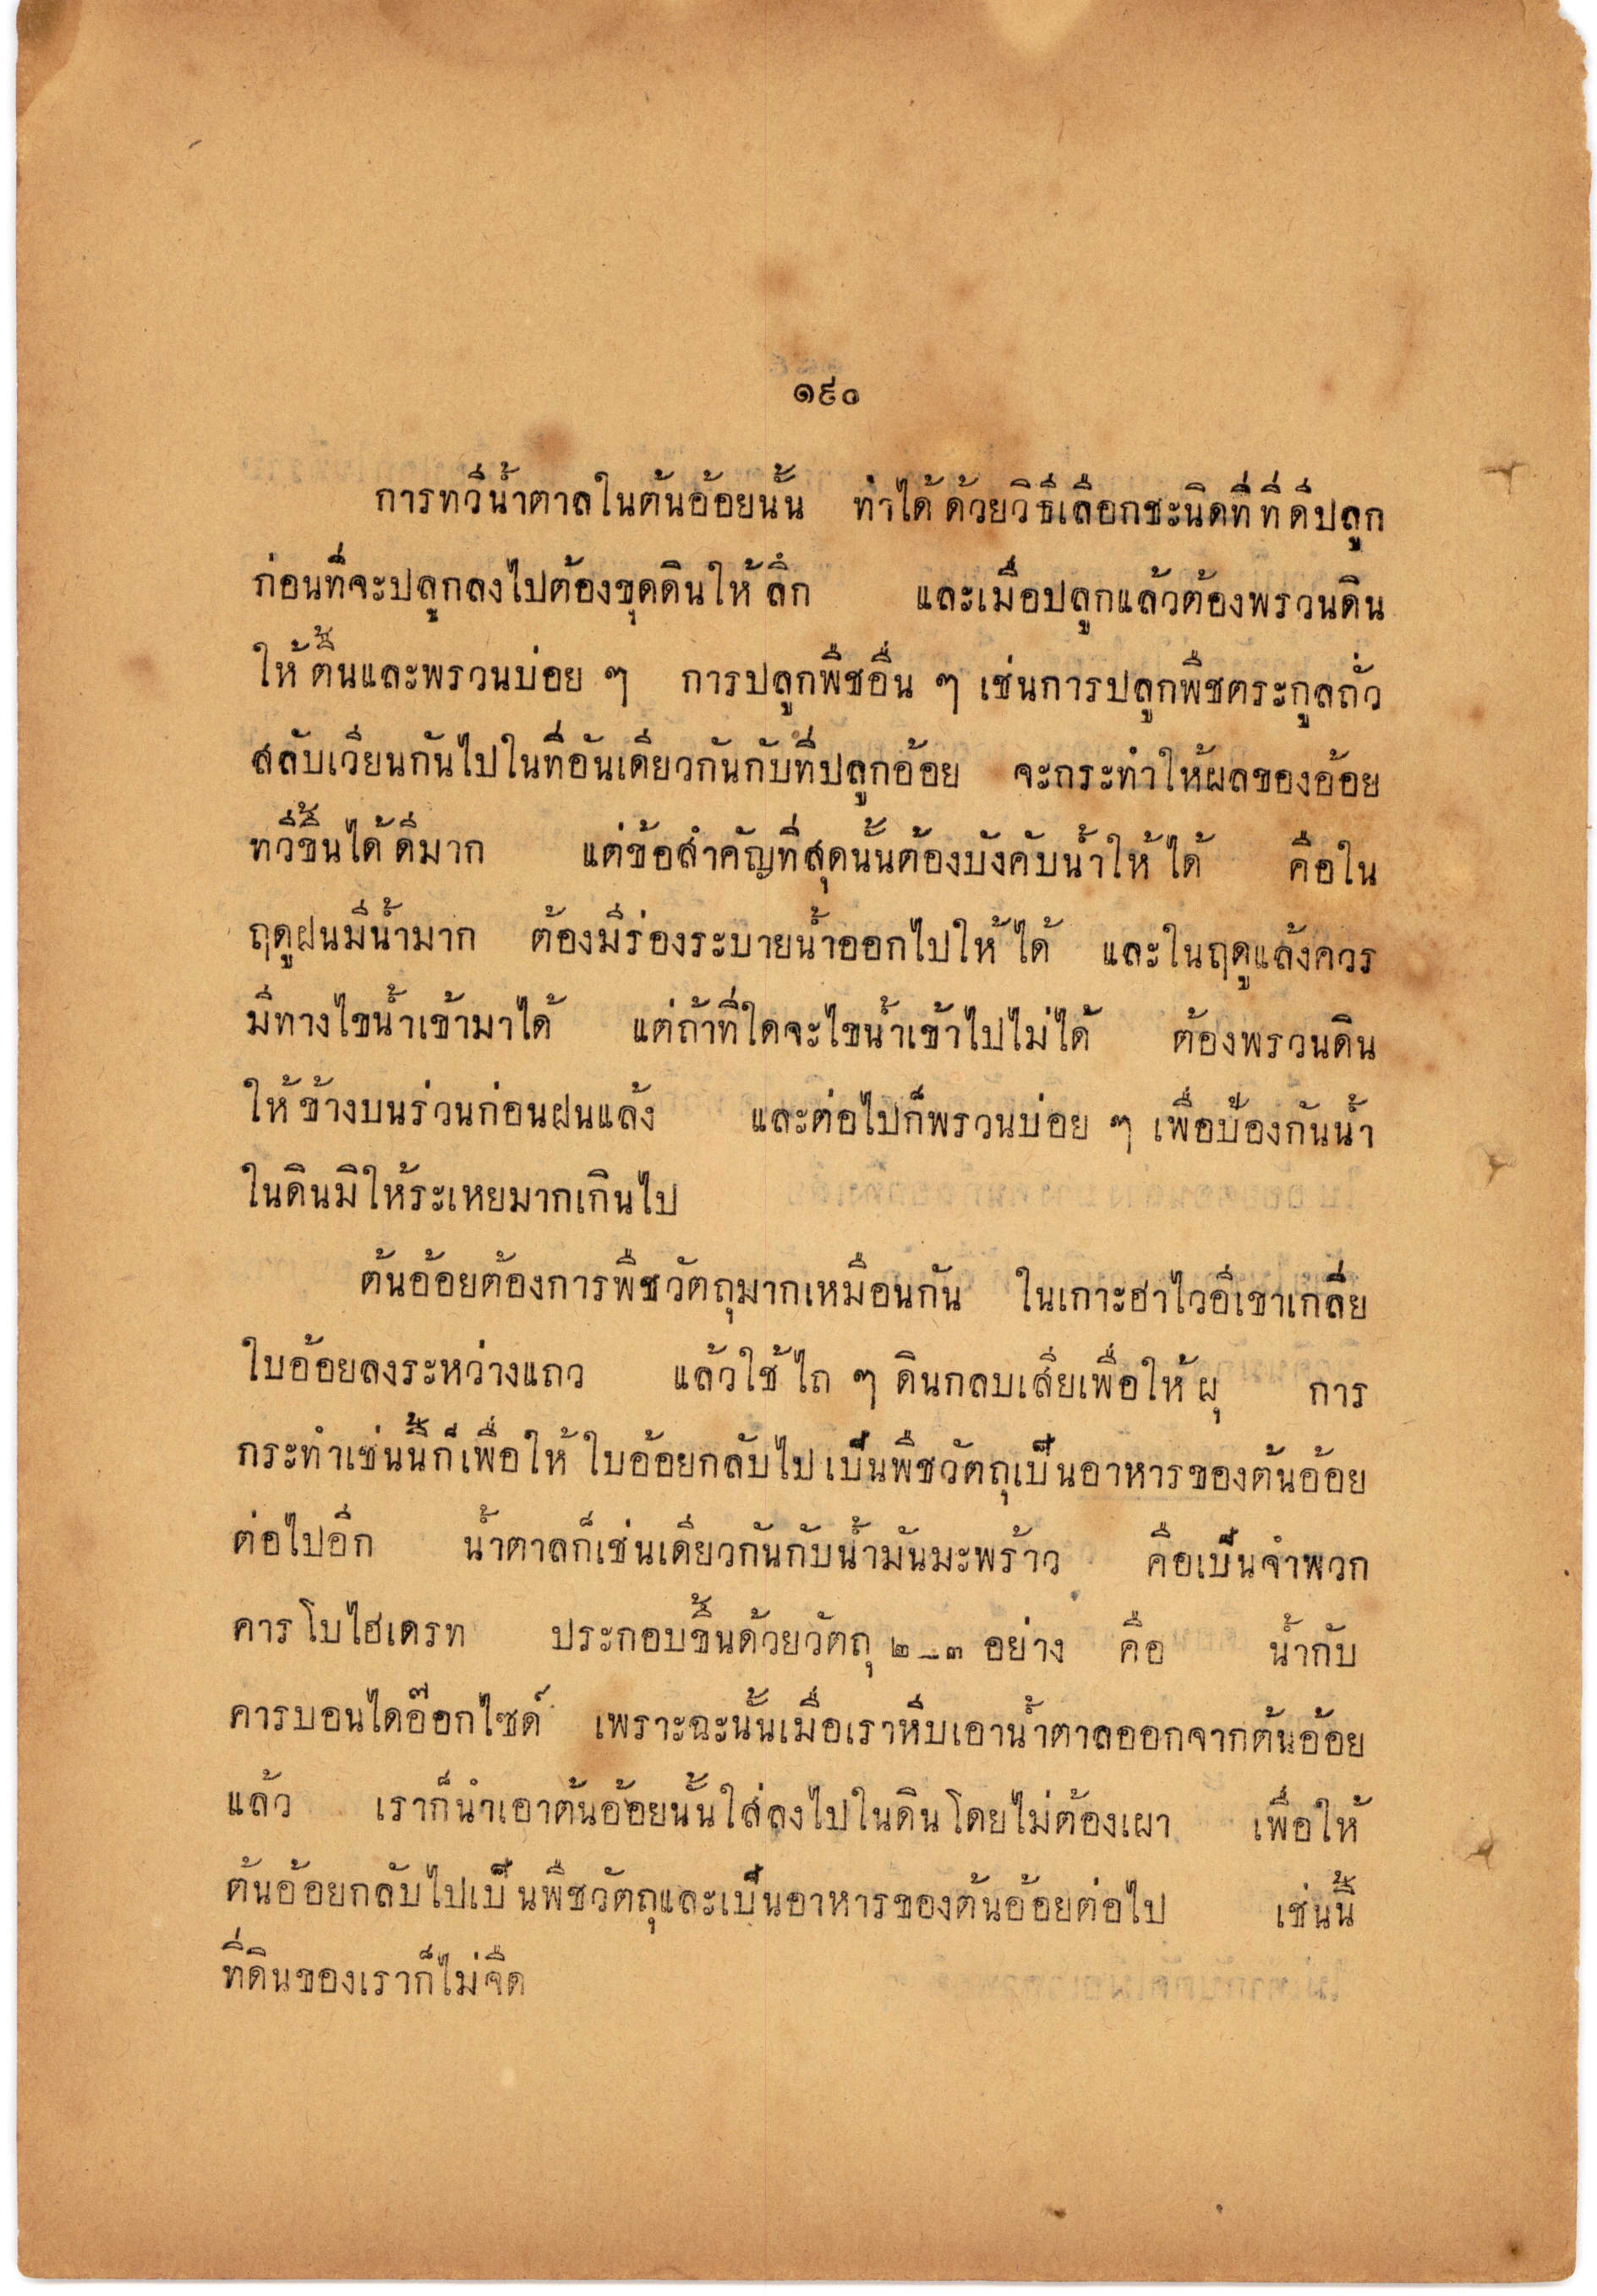 ๑๙๐
การทวีน้ำตาลในต้นอ้อยนั้น ทำได้ด้วยวิธีเลือกชะนิดที่ที่ดีปลูก
ก่อนที่จะปลูกลงไปต้องขุดดินให้ลึก และเมื่อปลูกแล้วต้องพรวนดิน
ให้ตื้นและพรวนบ่อย ๆ การปลูกพืชอื่น ๆ เช่นการปลูกพืชตระกูลถั่ว
สลับเวียนกันไปในที่อันเดียวกันกับที่ปลูกอ้อย จะกระทำให้ผลของอ้อย
ทวีขึ้นได้ดีมาก แต่ข้อสำคัญที่สุดนั้นต้องบังคับน้ำให้ได้ คือใน
ฤดูฝนมีน้ำมาก ต้องมีร่องระบายน้ำออกไปให้ได้ และในฤดูแล้งควร
มีทางไขน้ำเข้ามาได้ แต่ถ้าที่ใดจะไขน้ำเข้าไปไม่ได้ ต้องพรวนดิน
ให้ข้างบนร่วนก่อนฝนแล้ง และต่อไปก็พรวนบ่อย ๆ เพื่อป้องกันน้ำ
ในดินมิให้ระเหยมากเกินไป
ต้นอ้อยต้องการพืชวัตถุมากเหมือนกัน ในเกาะฮาไวอีเขาเกลี่ย
ใบอ้อยลงระหว่างแถว แล้วใช้ไถ ๆ ดินกลบเสียเพื่อให้ผุ การ
กระทำเช่นนี้ก็เพื่อให้ใบอ้อยกลับไปเป็นพืชวัตถุเป็นอาหารของต้นอ้อย
ต่อไปอีก น้ำตาลก็เช่นเดียวกันกับน้ำมันมะพร้าว คือเป็นจำพวก
คารโบไฮเดรท ประกอบขึ้นด้วยวัตถุ ๒_๓ อย่าง คือ น้ำกับ
คารบอนไดอ๊อกไซด์ เพราะฉะนั้นเมื่อเราหีบเอาน้ำตาลออกจากต้นอ้อย
แล้ว เราก็นำเอาต้นอ้อยนั้นใส่ลงไปในดินโดยไม่ต้องเผา เพื่อให้
ต้นอ้อยกลับไปเป็นพืชวัตถุและเป็นอาหารของต้นอ้อยต่อไป เช่นนี้
ที่ดินของเราก็ไม่จืด